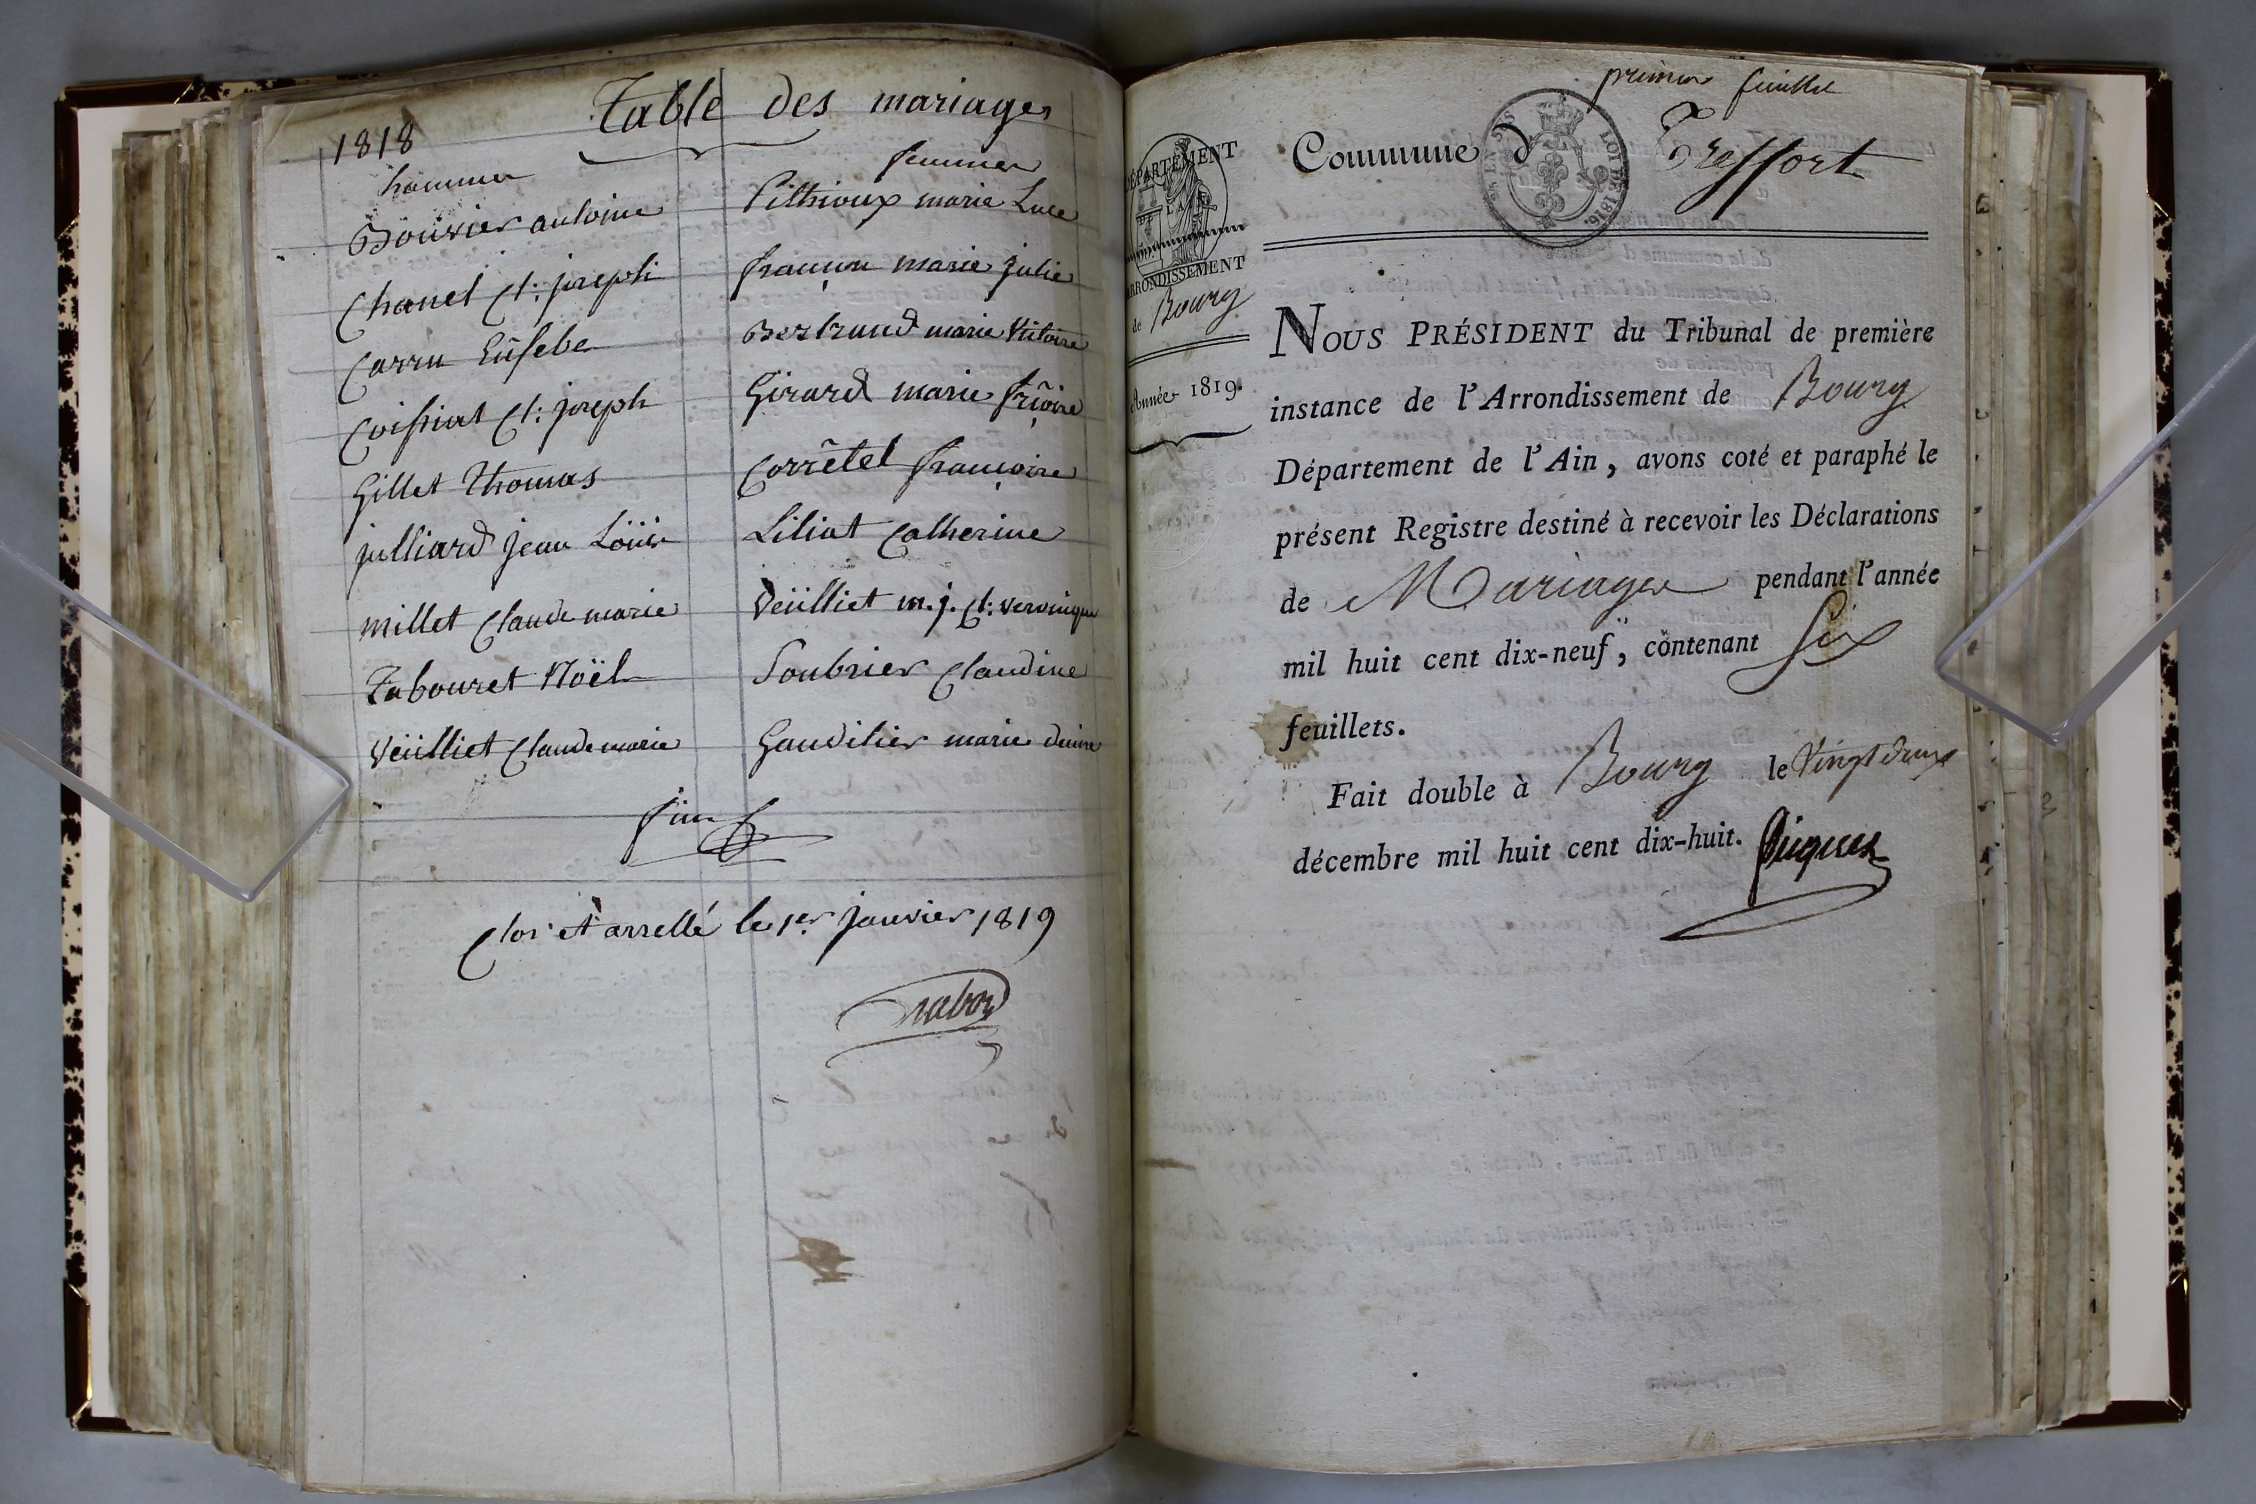 Table des mariages
1818
hommes femmes
Bouvier antoine Pithioux marie Luce
Chanel Ct: joseph françon marie julie
Carru Eûsebe Bertrand marie Vitoire
Coissiat Ct: joseph Girard marie frãoise
Gillet Thomas Corrêtel françoise
julliard jean Löüis Liliat Catherine
millet Claude marie Veüilliet m. j. Ct: veronique
Tabouret Nöël Soubrier Claudine
Veüilliet Claude marie Gaudilier marie denise
fin
Clos et arretté le 1er janvier 1819
premier feuillet
DÉPARTEMENT
DE L'AIN
ARRONDISSEMENT
de Bourg
Année 1819.
Commune d Treffort
LOI DE 1816
NOUS PRÉSIDENT du Tribunal de première
instance de l'Arrondissement de Bourg
Département de l'Ain, avons coté et paraphé le
présent Registre destiné à recevoir les Déclarations
de Mariages pendant l'année
mil huit cent dix-neuf, contenant Six
feuillets.
Fait double à Bourg le Vingt deux
décembre mil huit cent dix-huit.